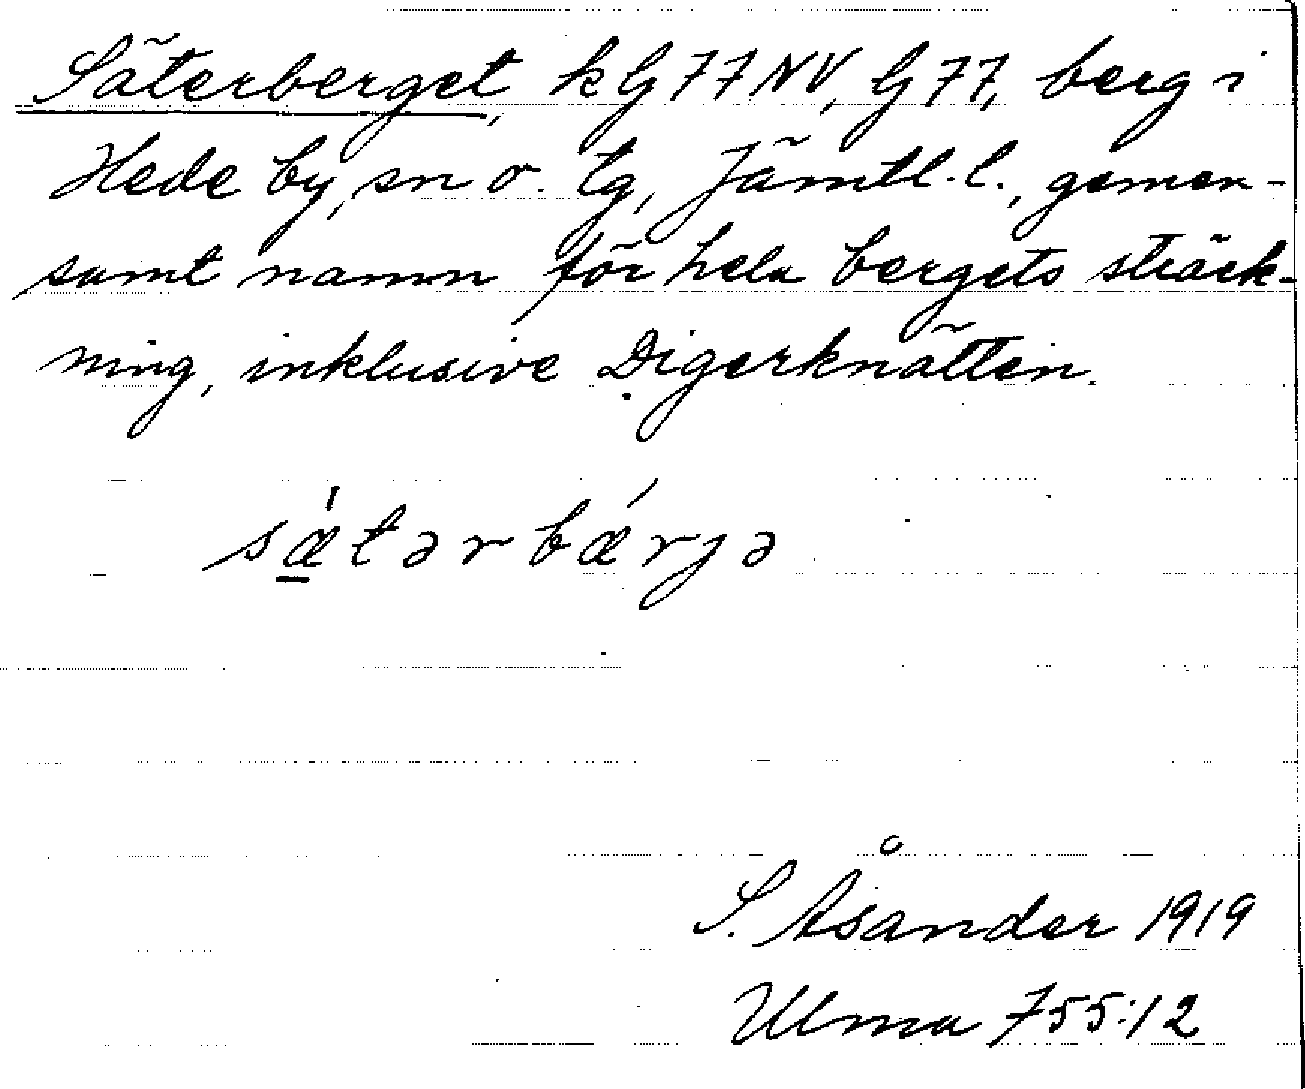 Säterberget, kG77NV, G77, berg i
Hede by, sn o. tg, Jämtl. l., gemen-
samt namn för hela bergets sträck-
ning, inklusive Digerknätten.
sǽ̱tərbǽrjə
S. Åsander 1919
Ulma 755:12